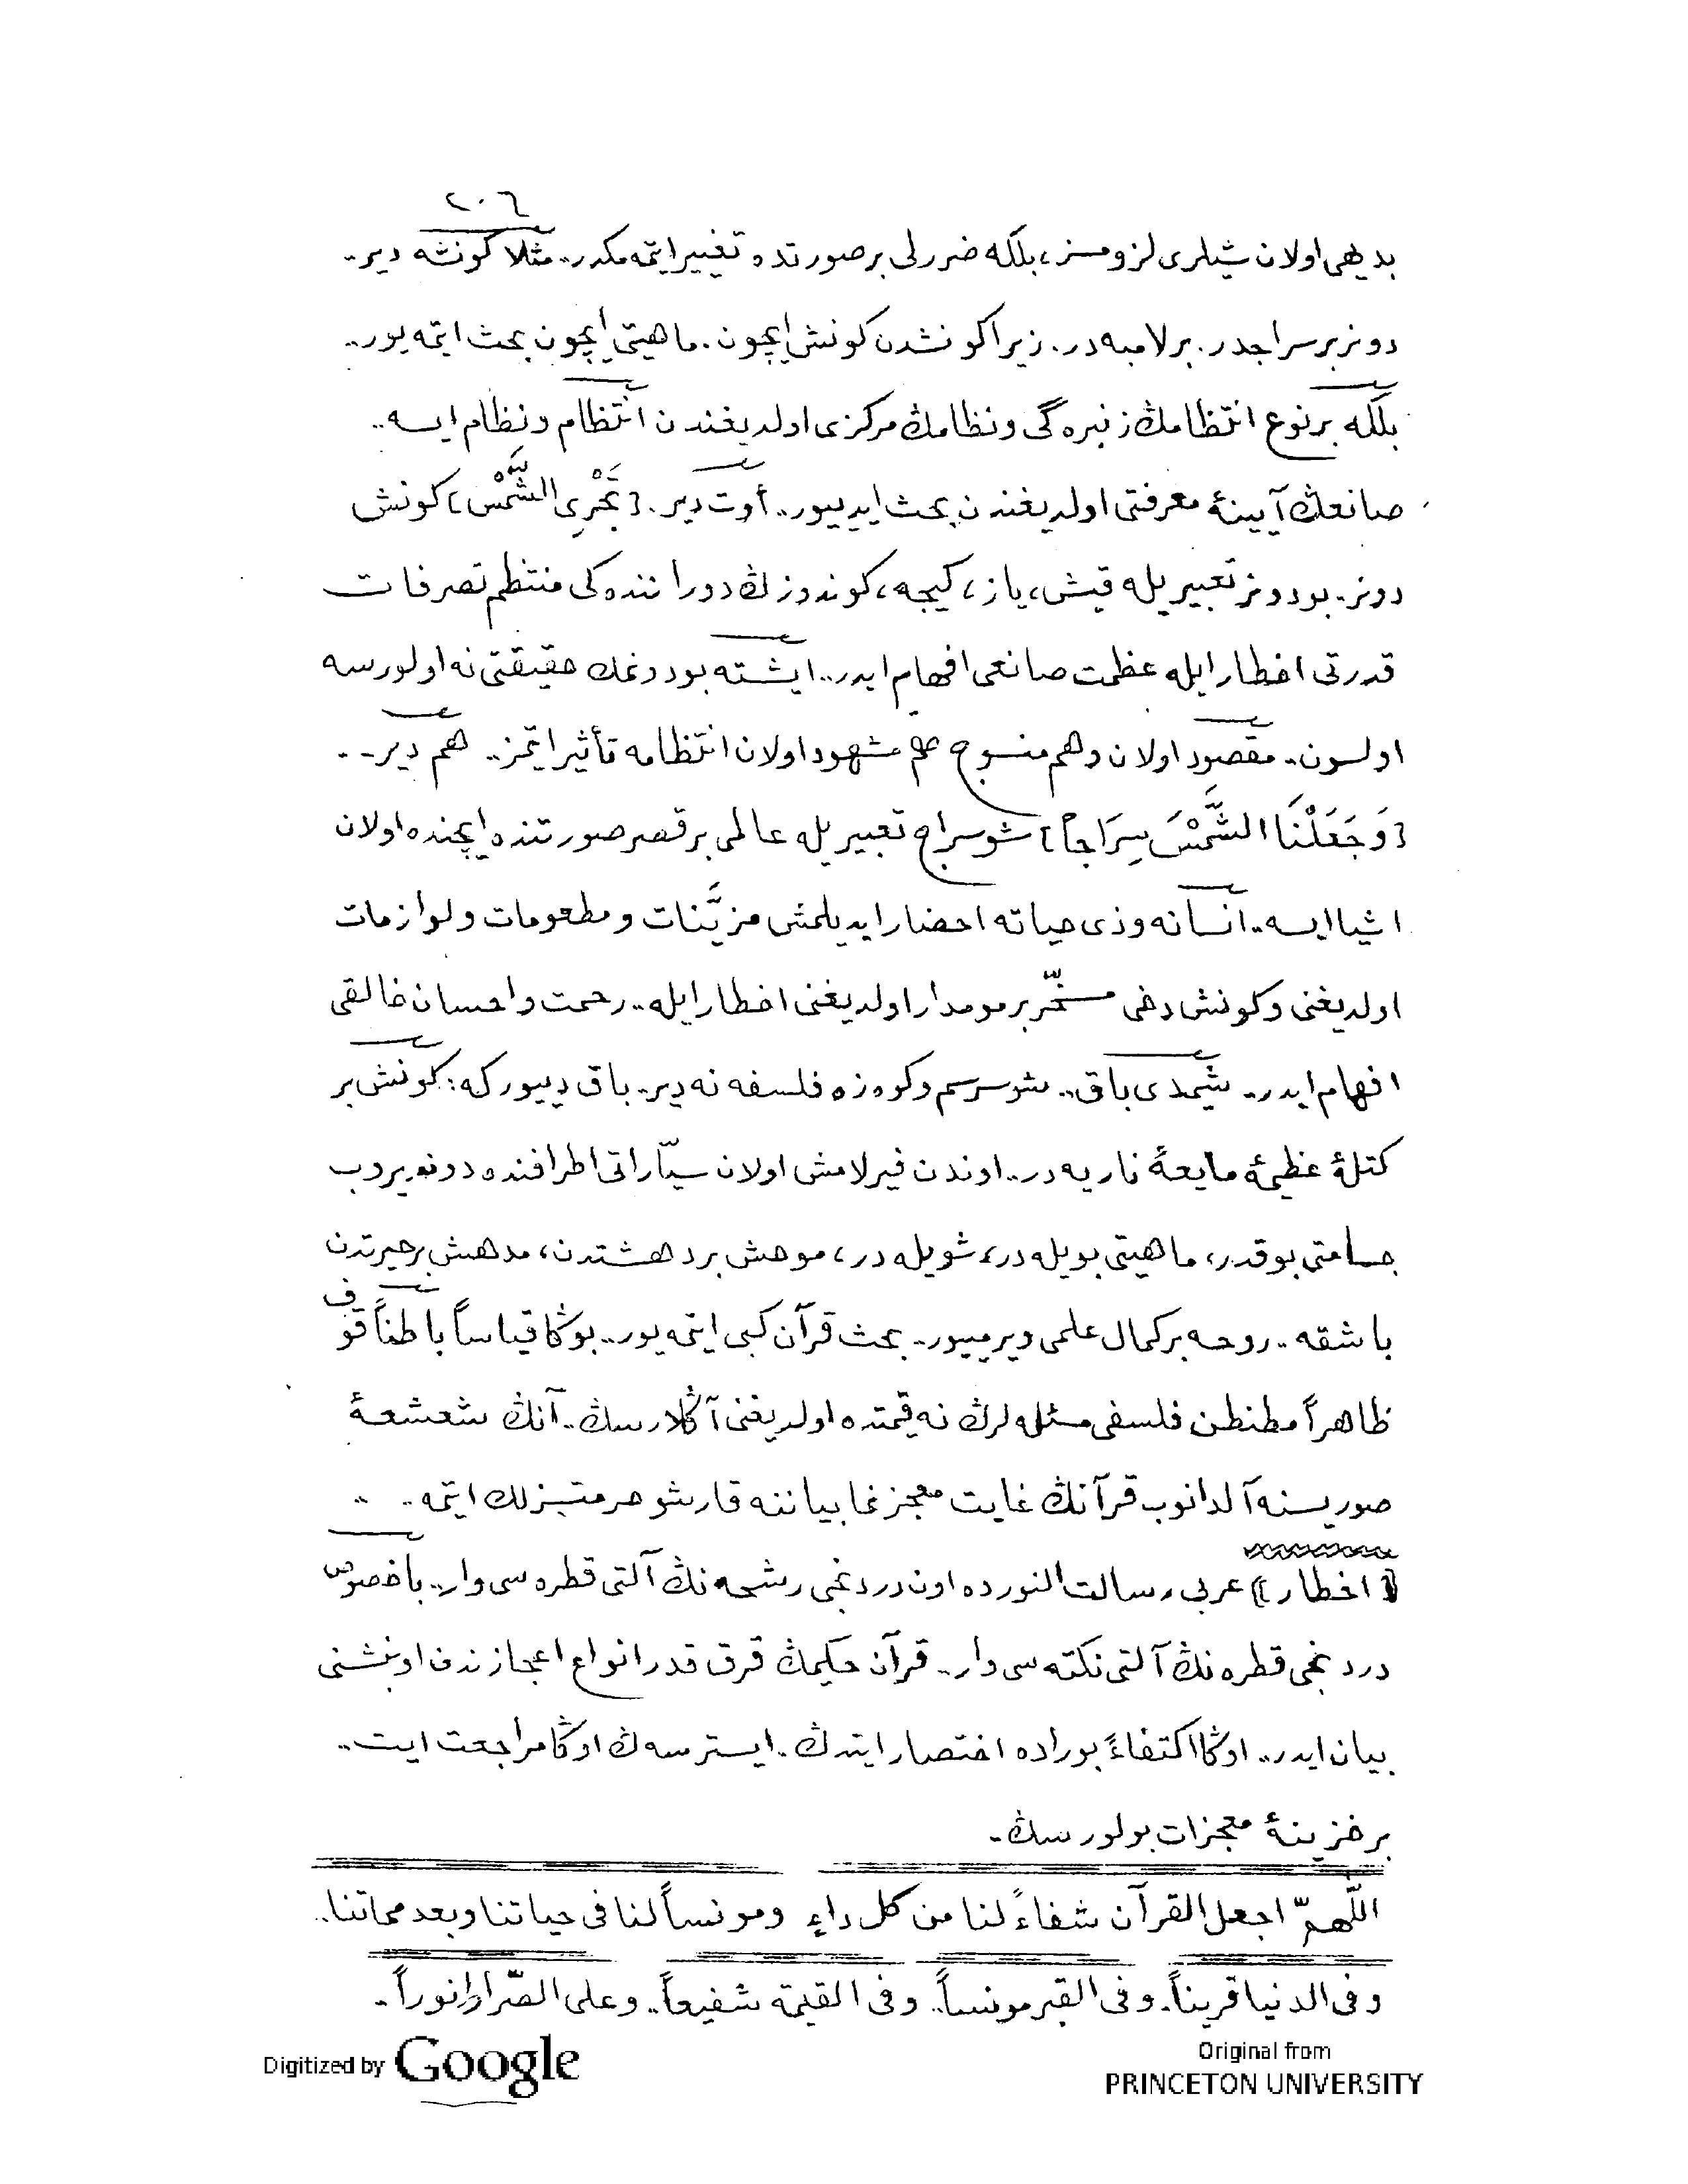 ٢٠٦
بديهى اولان شيلرى لزومسز، بلكه ضررلى بر صورتده تغيير ايتمه مكدر.. مثلا كونشه دير..
دونر بر سراجدر. بر لامبه در. زيرا كونشدن كونش ايچون. ماهيتى ايچون بحث ايتمه يور..
بلكه بر نوع انتظامڭ زنبره گى و نظامڭ مركزى اولديغندن انتظام و نظام ايسه..
صانعڭ آيينهٔ معرفتى اولديغندن بحث ايدييور.. أوت دير. [تَجْرِى الشَّمْسُ] كونش
دونر. بو دونر تعبيريله قيش، ياز، كيجه، كوندوزڭ دوراننده كى منتظم تصرفات
قدرتى اخطار ايله عظمت صانعى افهام ايدر.. ايشته بو دونمك حقيقتى نه اولورسه
اولسون.. مقصود اولان و هم منسوج هم مشهود اولان انتظامه تأثير ايتمز.. هم دير..
[وَجَعَلْنَا الشَّمْسَ سِرَاجاً] شو سراج تعبيريله عالمى بر قصر صورتنده ايچنده اولان
اشيا ايسه.. انسانه و ذى حياته احضار ايديلمش مزيّنات و مطعومات و لوازمات
اولديغنى و كونش دخى مسخّر بر مومدار اولديغنى اخطار ايله.. رحمت و احسان خالقى
افهام ايدر.. شيمدى باق.. شو سرسم و كوه زه فلسفه نه دير.. باق دييور كه: كونش بر
كتلهٔ عظيمهٔ مايعهٔ ناريه در.. اوندن فيرلامش اولان سيّاراتى اطرافنده دونديروب
جسامتى بو قدر، ماهيتى بويله در، شويله در، موحش بر دهشتدن، مدهش بر حيرتدن
باشقه.. روحه بر كمال علمى ويرمييور.. بحث قرآن كبى ايتمه يور.. بوڭا قياساً باطناً قوف
ظاهراً مطنطن فلسفى مسئله لرڭ نه قيمتده اولديغنى آڭلارسڭ.. آنڭ شعشعهٔ
صوريسنه آلدانوب قرآنڭ غايت معجزنما بياننه قارشو حرمتسزلك ايتمه..
[اخطار] عربى رسالت النورده اون دردنجى رشحه نڭ آلتى قطره سى وار.. باخصوص
دردنجى قطره نڭ آلتى نكته سى وار.. قرآن حكيمڭ قرق قدر انواع اعجازندن اون بشنى
بيان ايدر.. اوڭا اكتفاءً بوراده اختصار ايتدڭ.. ايسترسه ڭ اوڭا مراجعت ايت..
بر خزينهٔ معجزات بولورسڭ..
اللّهمّ اجعل القرآن شفاءً لنا من كل داءٍ ومونساً لنا فى حياتنا وبعد مماتنا..
وفى الدنيا قريناً. وفى القبر مونساً.. وفى القيمة شفيعاً.. وعلى الصّراط نوراً..
Digitized by Google
Original from
PRINCETON UNIVERSITY